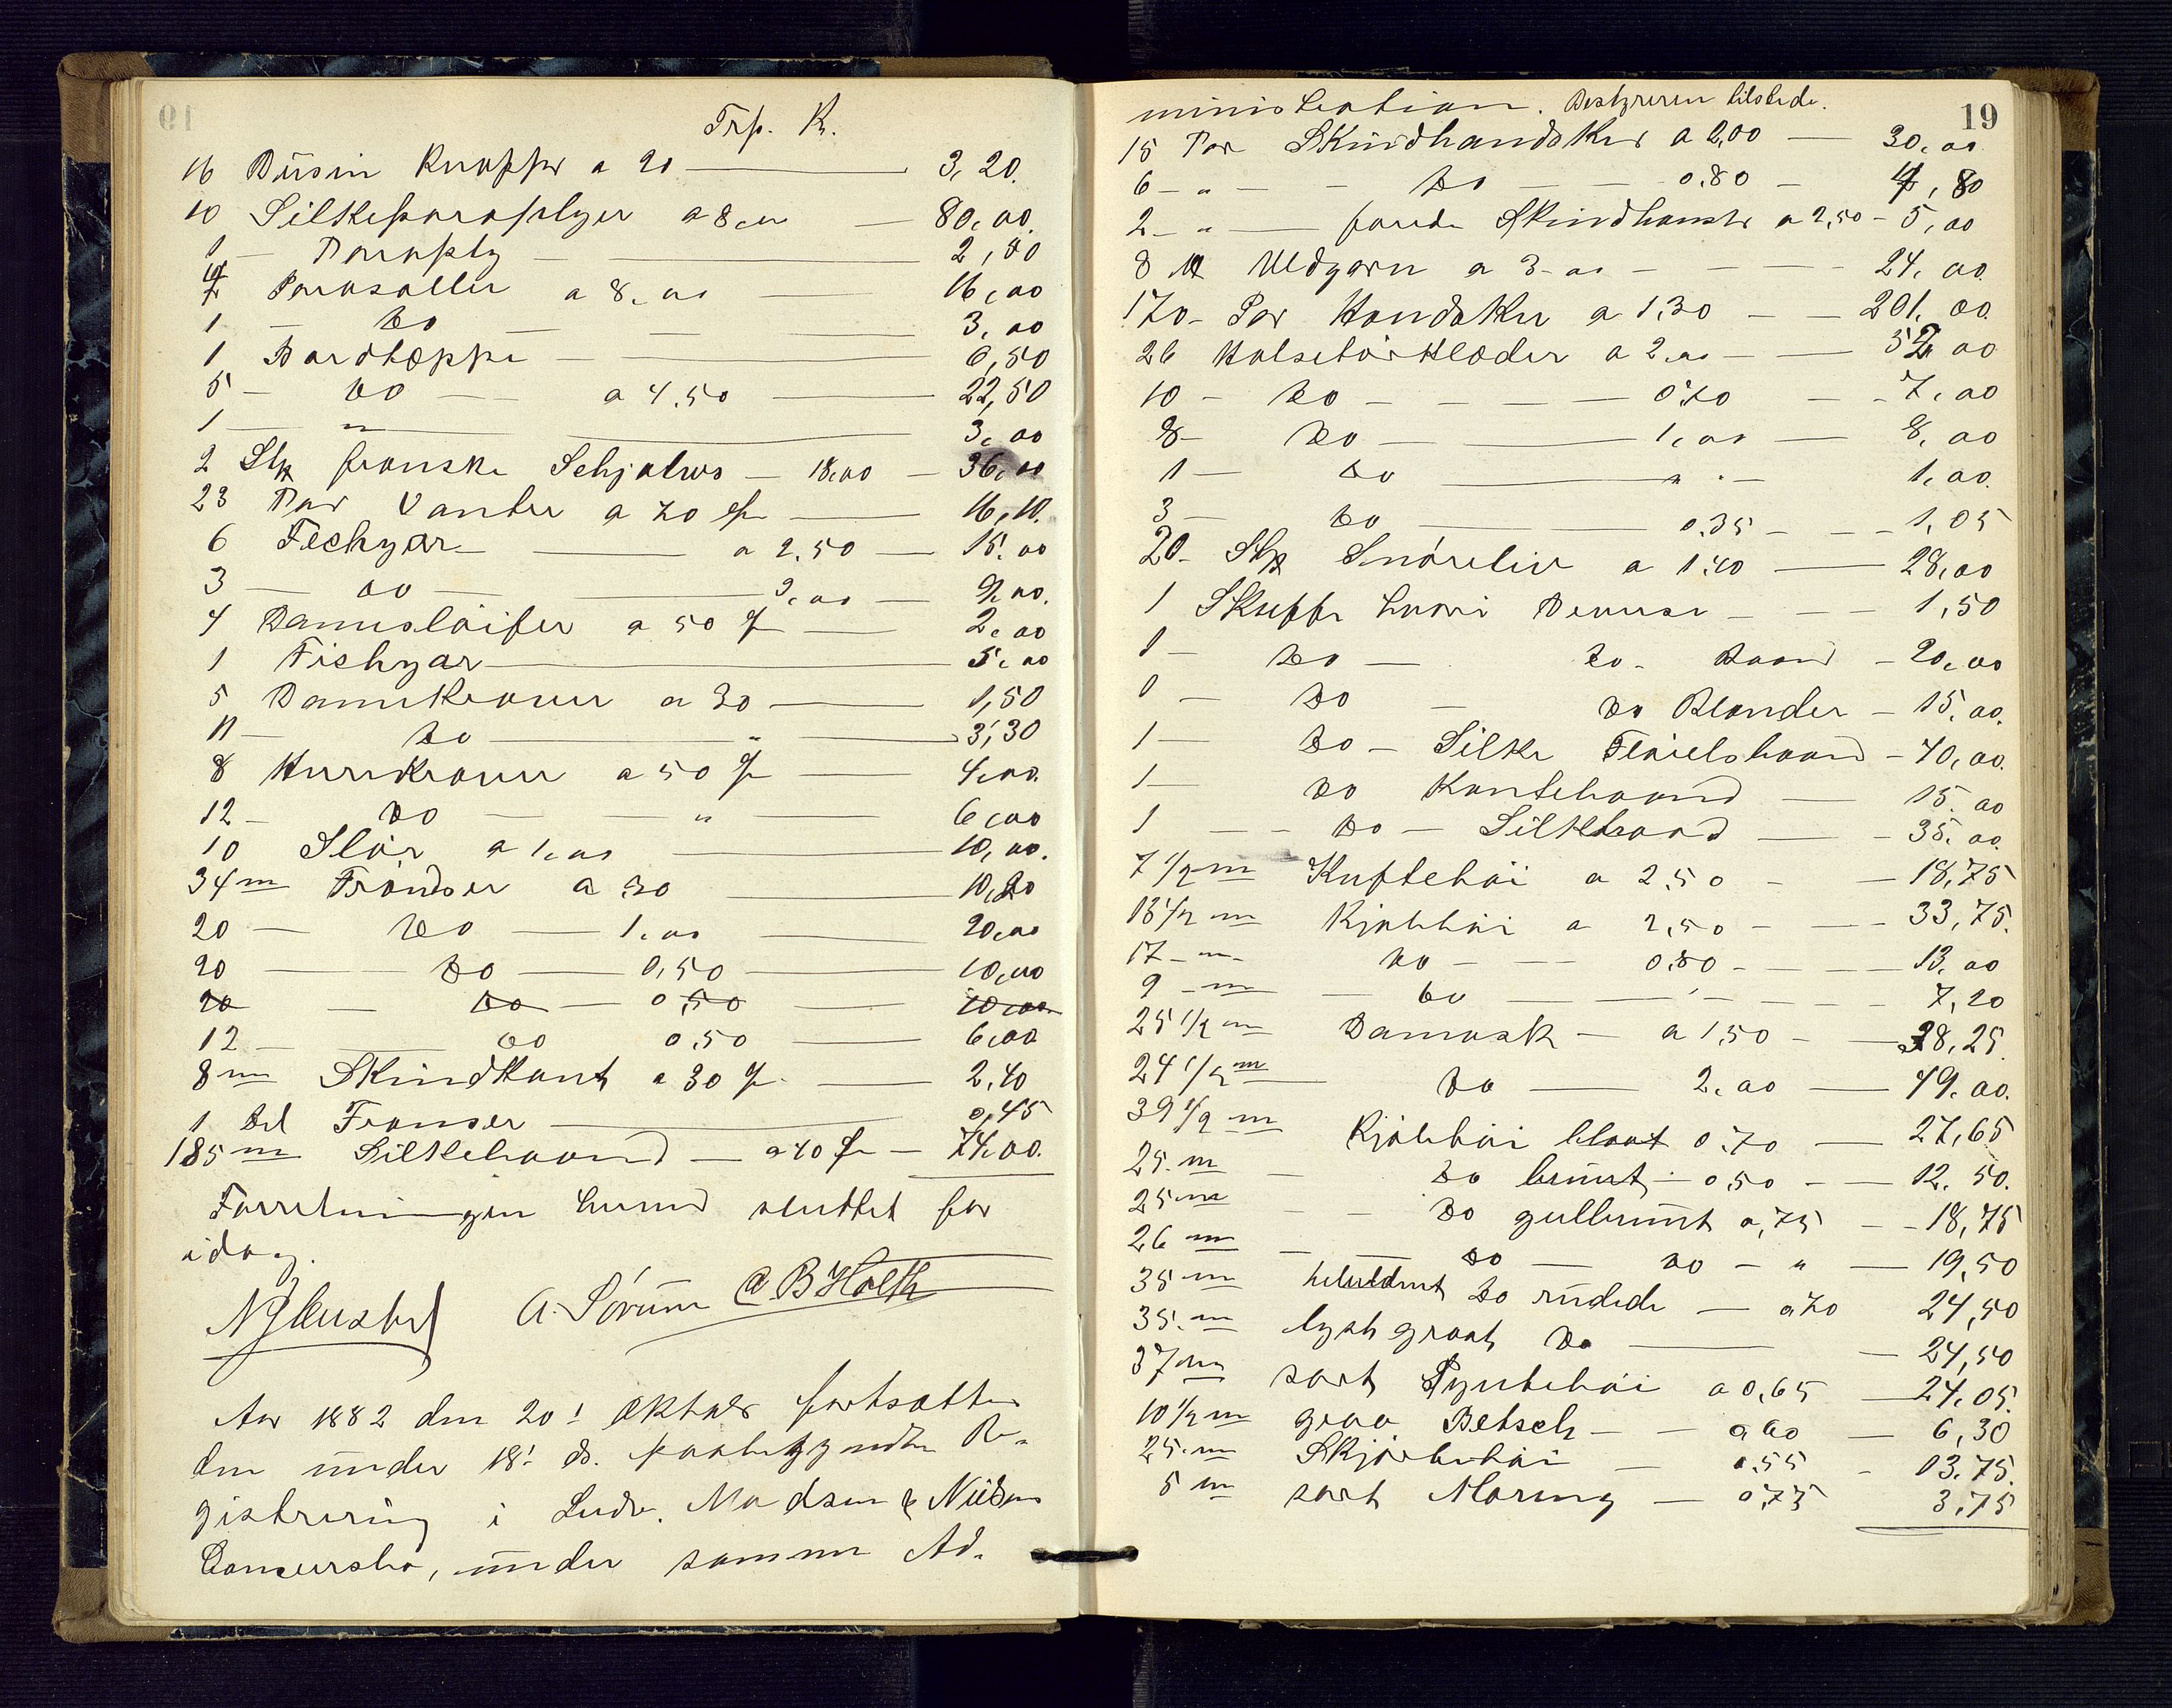 Trp. Kr.
16 Düsin Knapper a 20 — 3,20.
10 Silkeparaplyer a 8,00 — 80,00.
1 — Paraply — 2,80
2 Parasoller a 8,00 — 16,00
1 — do — 3,00
1 Bordtæppe — 6,50
5 — do — a 4,50 — 22,50
1 — " — 3,00
2 Stk franske Schjalws — 18,00 — 36,00
23 Par Vanter a 70 Øre — 16,10.
6 Fichyar — a 2,50 — 15,00
3 — do — 3,00 — 9,00.
4 Dameslöifer a 50 Ø — 2,00
1 Fichyar — 5,00
5 Damekraver a 30 — 1,50
11 — do — " — 3,30
8 Herrekraver a 50 Ø — 4,00.
12 — do — " — 6,00
10 Slör a 1,00 — 10,00.
34 m Fröndser a 30 — 10,20
20 — do — 1,00 — 20,00
20 — do — 0,50 — 10,00
20 — do — 0,50 — 10,00
12 — do 0,50 — 6,00
8 m Skindkant a 30 Ø — 2,40
1 Del Franser — 0,45
185 m Silkebaand — a 40 Ø — 74,00.
Forretningen herved sluttet for
idag.
A. Sörum B Holth
Aar 1882 den 20' Oktober fortsattes
den under 18' ds. paabegyndte Re-
gistrering i Ludv. Madsen & Nielsens
Concursbo, under samme Ad-
19
ministration. Bestyreren tilstede.
15 Par Skindhandsker a 2,00 — 30,00
6 — " — do — 0,80 — 4,80
2 — " — forede Skindhansker a 2,50 — 5,00
8 Uldgarn a 3,00 — 24,00
170 — Par Handsker a 1,30 — 201,00.
26 Halsetörklæder a 2,00 — 52,00
10 — do — 0,70 — 7,00
8 — do — 1,00 — 8,00
1 — do — " — 1,00.
3 — do — 0,35 — 1,05
20 — Stk Snöreliv a 1,40 — 28,00
1 Skuffe hvori Diverse — 1,50
1 — do — do. Baand — 20,00
1 — do — do Blonder — 15,00.
1 — do — Silke Flöielsbaand — 40,00.
1 — do Kantebaand — 15,00
1 — do — Silkebaand — 35,00.
7 1/2 m Kuftetöi a 2,50 — 18,75
13 1/2 m Kjoletöi a 2,50 — 33,75.
17 — m — do — 0,80 — 13,00
9 — m — do — 7,20
25 1/2 m Damask — a 1,50 — 38,25.
24 1/2 m — do — 2,00 — 49,00.
39 1/2 m Kjoletöi blaat 0,70 — 27,65
25. m — do brunt — 0,50 — 12,50.
25 m — do gulbrunt 0,75 — 18,75
26 m — do — do — " — 19,50
35 m do rudede — 0,70 24,50
35. m lyst graat do — 24,50
37 m sort Pyntetöi a 0,65 — 24,05.
10 1/2 m graa Betsch — a 60 — 6,30
25. m Skjörtetöi — 0,55 — 13,75.
5 m sort Moring — 0,75 3,75